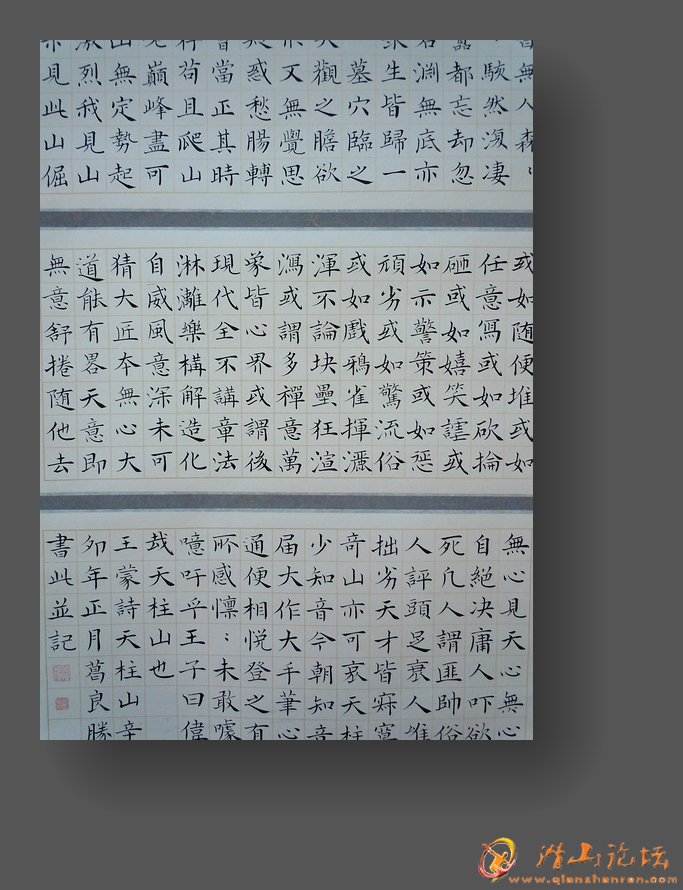 無人森〻
駭然復凄
都忘却忽
若淵無底亦
生皆歸一
墓穴臨之
觀之膽欲
又無覺思
惑愁腸轉
當正其時
苟且爬山
巔峰盡可
山無定勢起
激烈我見山
見此山倔
或如随便堆或如
任意寫或如砍掄
砸或如嬉笑謔或
如示警策或如惩
頑劣或如驚流俗
或如戲鴉雀揮灑
渾不論块壘狂渲
瀉或謂多禪意萬
象皆心界或謂後
現代全不講章法
淋漓樂構解造化
自威風意深未可
猜大匠本無心大
道能有畧天意即
無意舒捲随他去
無心見天心無心
自絕决庸人吓欲
死凡人謂匪帥俗
人評頭足衰人惟
拙劣天才皆寂寞
奇山亦可哀天柱
少知音今朝知音
届大作大手筆心
通便相悦登之有
所感懍〻未敢噱
噫吁乎王子曰偉
哉天柱山也
王蒙詩天柱山辛
卯年正月葛良勝
書此並記
潜山论坛
www.qianshanren.com